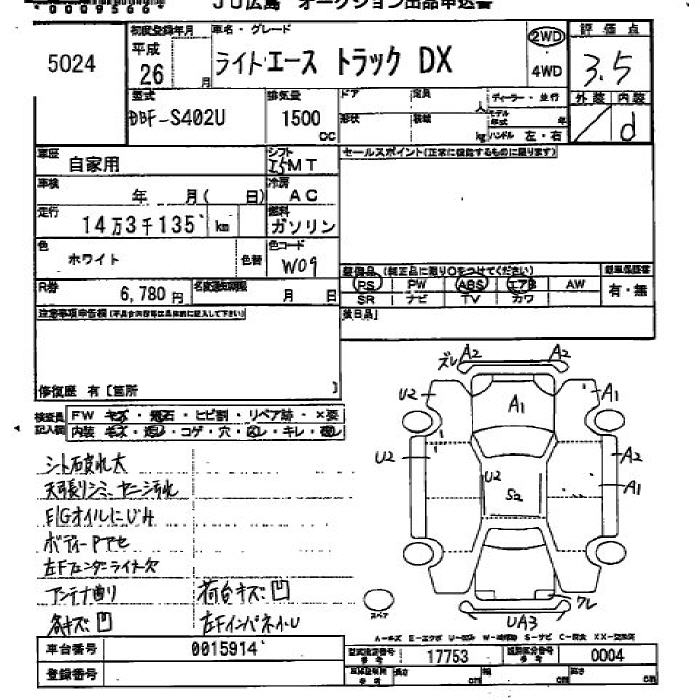 *0009566* JU広島 オークション出品申込書
5024
初度登録年月 平成 26 月
車名・グレード ライト・エース トラック DX
2WD 4WD
評価点 3.5
外装 内装 d
型式 DBF-S402U
排気量 1500 CC
ドア 定員 人 ディーラー・並行
形状 積載 kg モデル年式 年 ハンドル 左・右
車歴 自家用
シフト I5MT
セールスポイント(正常に機能するものに限ります)
車検 年 月( 日)
冷房 AC
走行 14万3千135 km
燃料 ガソリン
色 ホワイト 色替
色コード W09
装備品(純正品に限り○をつけてください)
新車保証書 有・無
PS PW ABS エアB AW
SR ナビ TV カワ
R券 6,780円
名変期限 月 日
後日品
注意事項申告欄(不具合内容等は具体的に記入して下さい)
修復歴 有 [箇所 ]
検査員記入欄
FW キズ・飛石・ヒビ割・リペア跡・×要
内装 キズ・汚レ・コゲ・穴・凹レ・キレ・
シート破れ大
天張りシミ、ヤニ汚れ
E/Gオイルにじみ
ボディーPアセ
左Fフェンダーライナー欠
アンテナ曲り 荷台キズ凹
各キズ凹 左FインパネイU
ズレ A2 A2
U2 A1 A1
U2 A2
U2 S2 A1
クレ
スペア
UA3
A-キズ E-エクボ U-凹 W-波 S-サビ C-腐食 XX-交換済
車台番号 0015914
登録番号
型式指定番号 参考 17753
類別区分番号 参考 0004
長さ cm 幅 cm 高さ cm